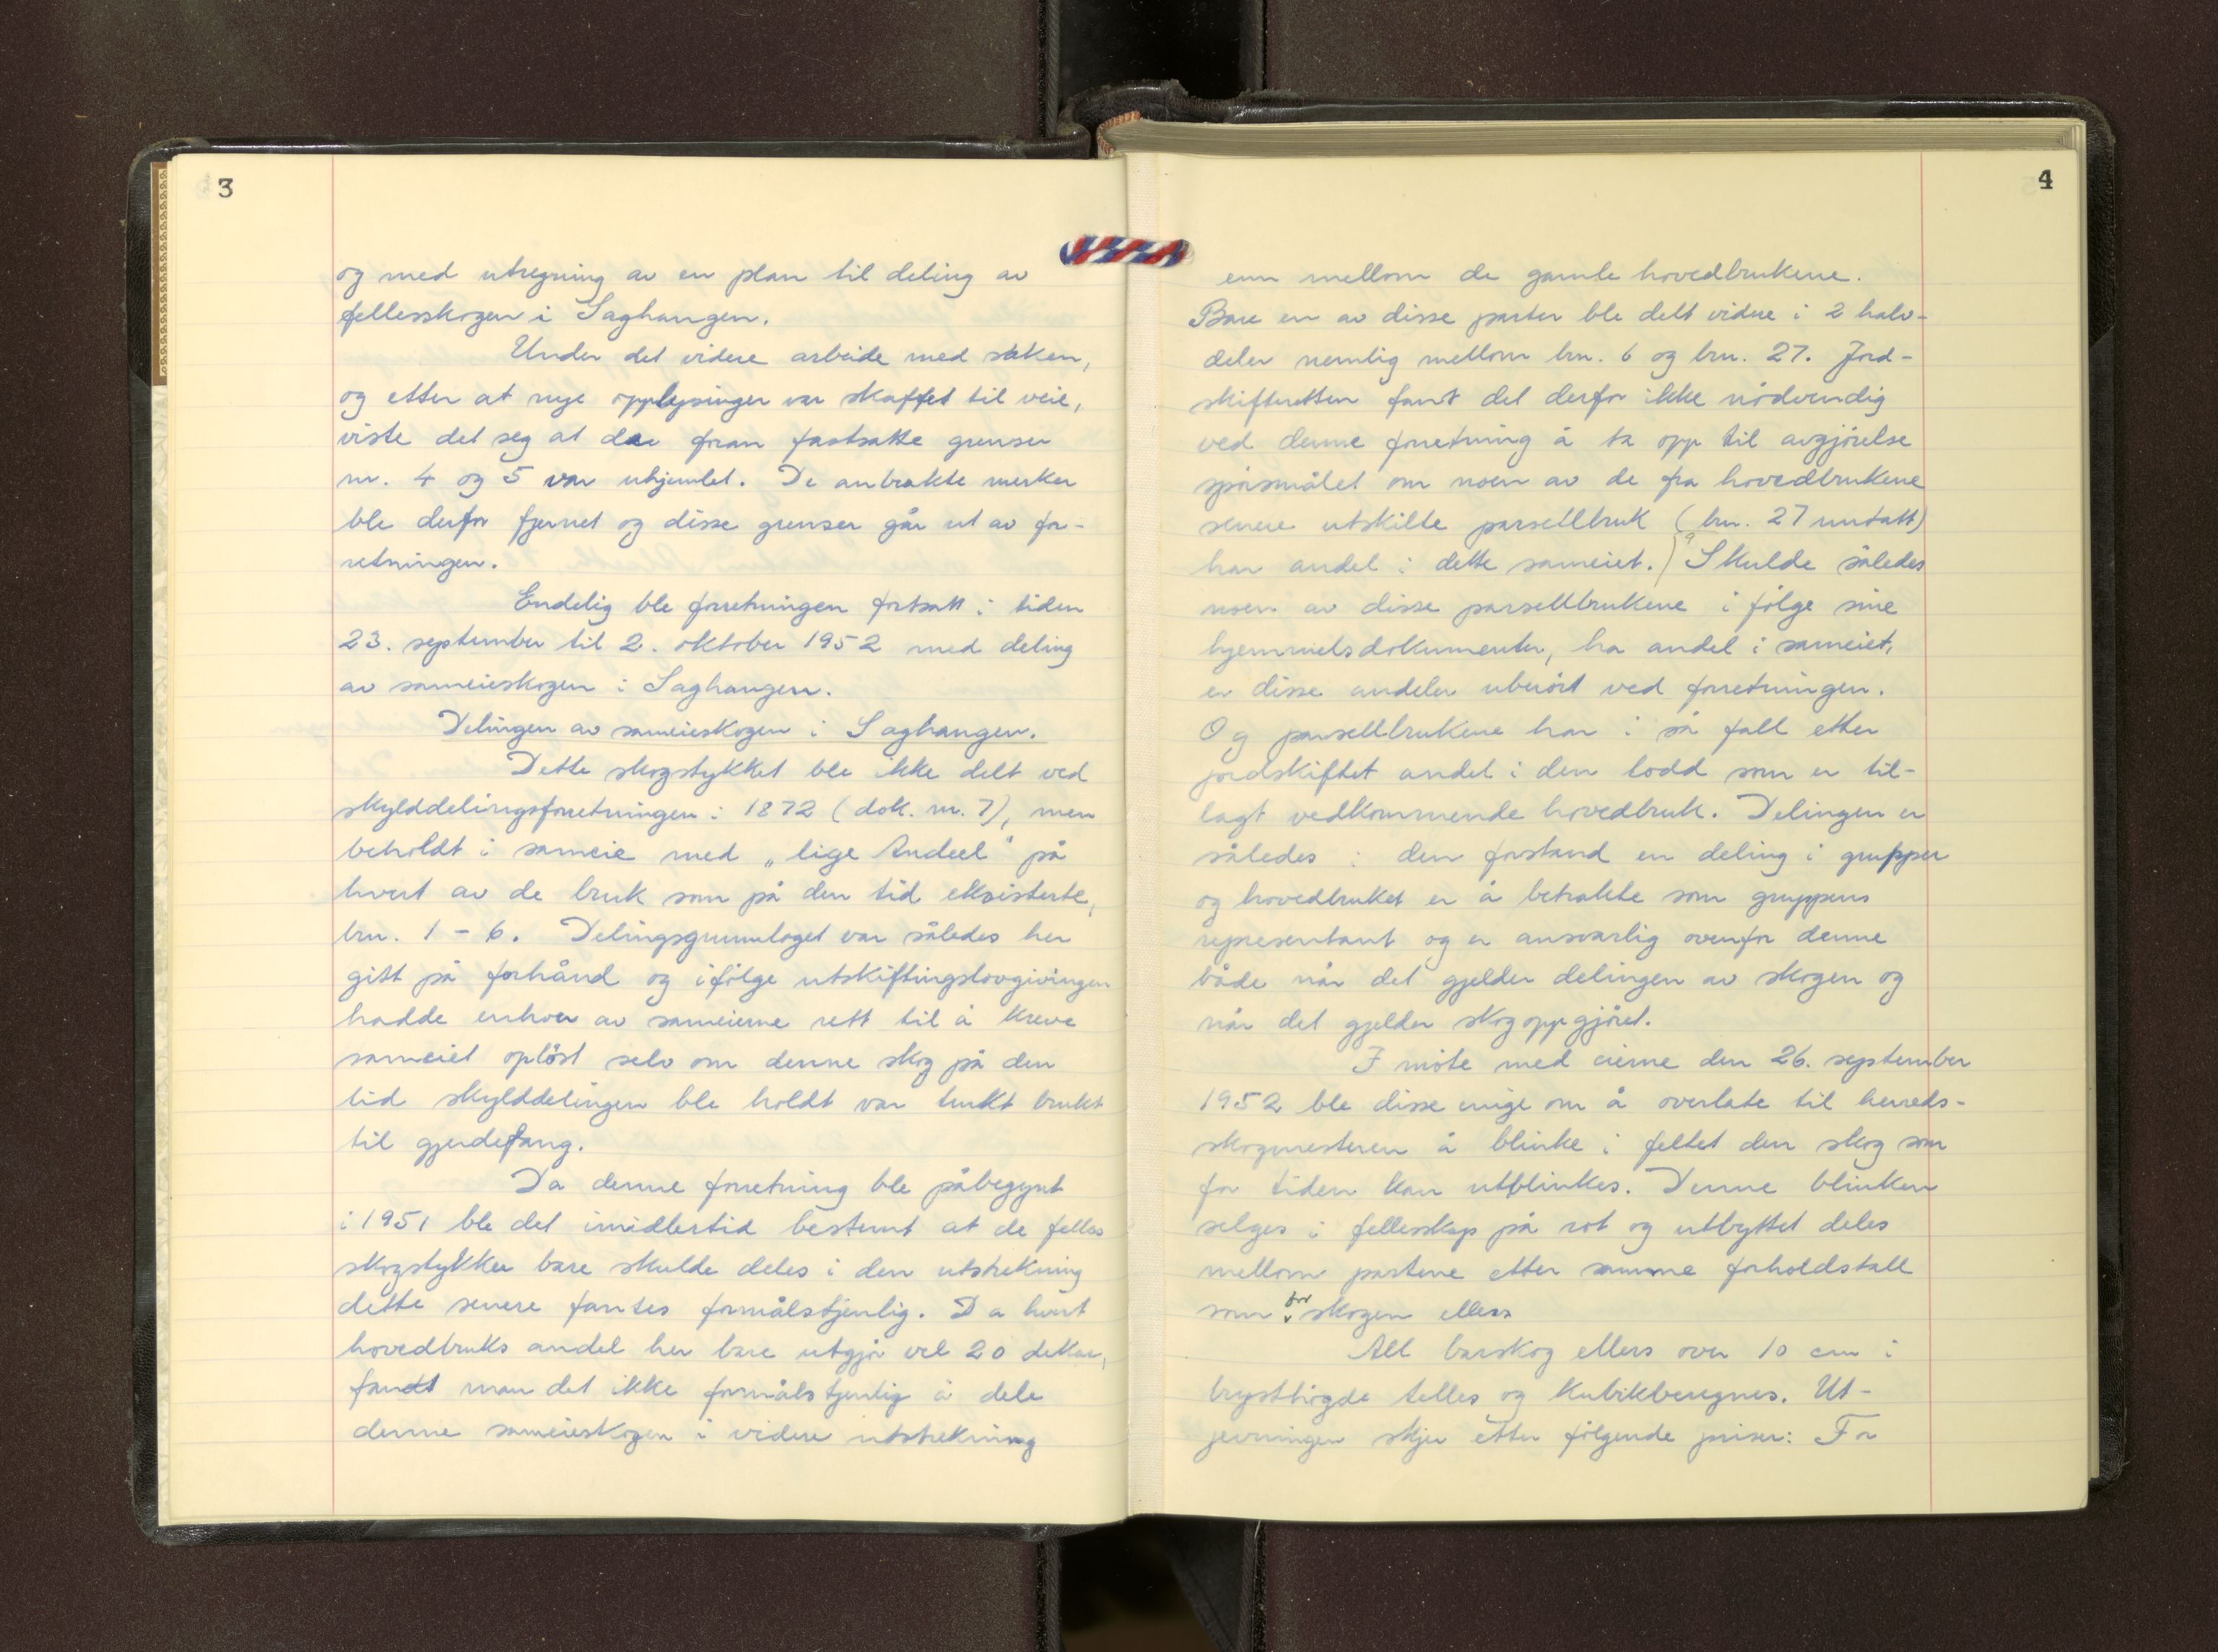 3
og med utregning av en plan til deling av
fellesskogen i Saghaugen.
Under det videre arbeide med saken,
og etter at nye opplysninger var skaffet til veie,
viste det seg at de foran fastsatte grenser
nr. 4 og 5 var uhjemlet. De anbrakte merker
ble derfor fjernet og disse grenser går ut av for-
retningen.
Endelig ble forretningen fortsatt i tiden
23. september til 2. oktober 1952 med deling
av sameieskogen i Saghaugen.
Delingen av sameieskogen i Saghaugen.
Dette skogstykket ble ikke delt ved
skylddelingsforretningen i 1872 (dok. nr. 7), men
beholdt i sameie med „lige Andeel" på
hvert av de bruk som på den tid eksisterte,
brn. 1 - 6. Delingsgrunnlaget var således her
gitt på forhånd og ifölge utskiftingslovgivingen
hadde enhver av sameierne rett til å kreve
sameiet oplöst selv om denne skog på den
tid skylddelingen ble holdt var tenkt brukt
til gjerdefang.
Da denne forretning ble påbegynt
i 1951 ble det imidlertid bestemt at de felles
skogstykker bare skulde deles i den utstrekning
dette senere fantes formålstjenlig. Da hvert
hovedbruks andel her bare utgjör vel 20 dekar,
fandt man det ikke formålstjenlig å dele
denne sameieskogen i videre utstrekning
4
enn mellom de gamle hovedbrukene.
Bare en av disse parter ble delt videre i 2 halv-
deler nemlig mellom brn. 6 og brn. 27. Jord-
skifteretten fant det derfor ikke nödvendig
ved denne forretning å ta opp til avgjörelse
spörsmålet om noen av de fra hovedbrukene
senere utskilte parsellbruk (brn. 27 unntatt)
har andel i dette sameiet.) Skulde således
noen av disse parsellbrukene i fölge sine
hjemmelsdokumenter, ha andel i sameiet,
er disse andeler uberört ved forretningen.
Og parsellbrukene har i så fall etter
jordskiftet andel i den lodd som er til-
lagt vedkommende hovedbruk. Delingen er
således i den forstand en deling i grupper
og hovedbruket er å betrakte som gruppens
representant og er ansvarlig ovenfor denne
både når det gjelder delingen av skogen og
når det gjelder skogoppgjöret.
I möte med eierne den 26. september
1952 ble disse enige om å overlate til herreds-
skogmesteren å blinke i feltet den skog som
for tiden kan utblinkes. Denne blinken
selges i fellesskap på rot og utbyttet deles
mellom partene etter samme forholdstall
som for skogen ellers
All barskog ellers over 10 cm i
brysthögde telles og kubikberegnes. Ut-
jevningen skjer etter fölgende priser: For